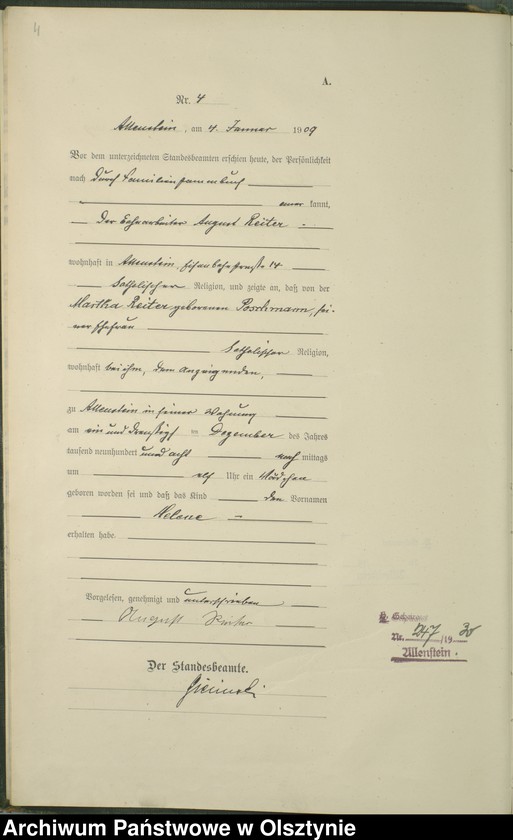 4
A.
Nr. 4
Allenstein, am 4. Januar 1909
Vor dem unterzeichneten Standesbeamten erschien heute, der Persönlichkeit
nach durch Familienstammbuch
kannt,
der August Reiter
wohnhaft in Allenstein, 14
katholischer Religion, und zeigte an, daß von der
Martha Reiter geborenen Poschmann, sei-
ner Ehefrau
katholischer Religion,
wohnhaft bei ihm, dem Anzeigenden,
zu Allenstein in seiner Wohnung
am ein und dreißigsten Dezember des Jahres
tausend neunhundert und acht nach mittags
um elf Uhr ein Mädchen
geboren worden sei und daß das Kind den Vornamen
Helene
erhalten habe.
Vorgelesen, genehmigt und unterschrieben
August Reiter
Der Standesbeamte.
Nr. 247/1930
Allenstein.
Archiwum Państwowe w Olsztynie